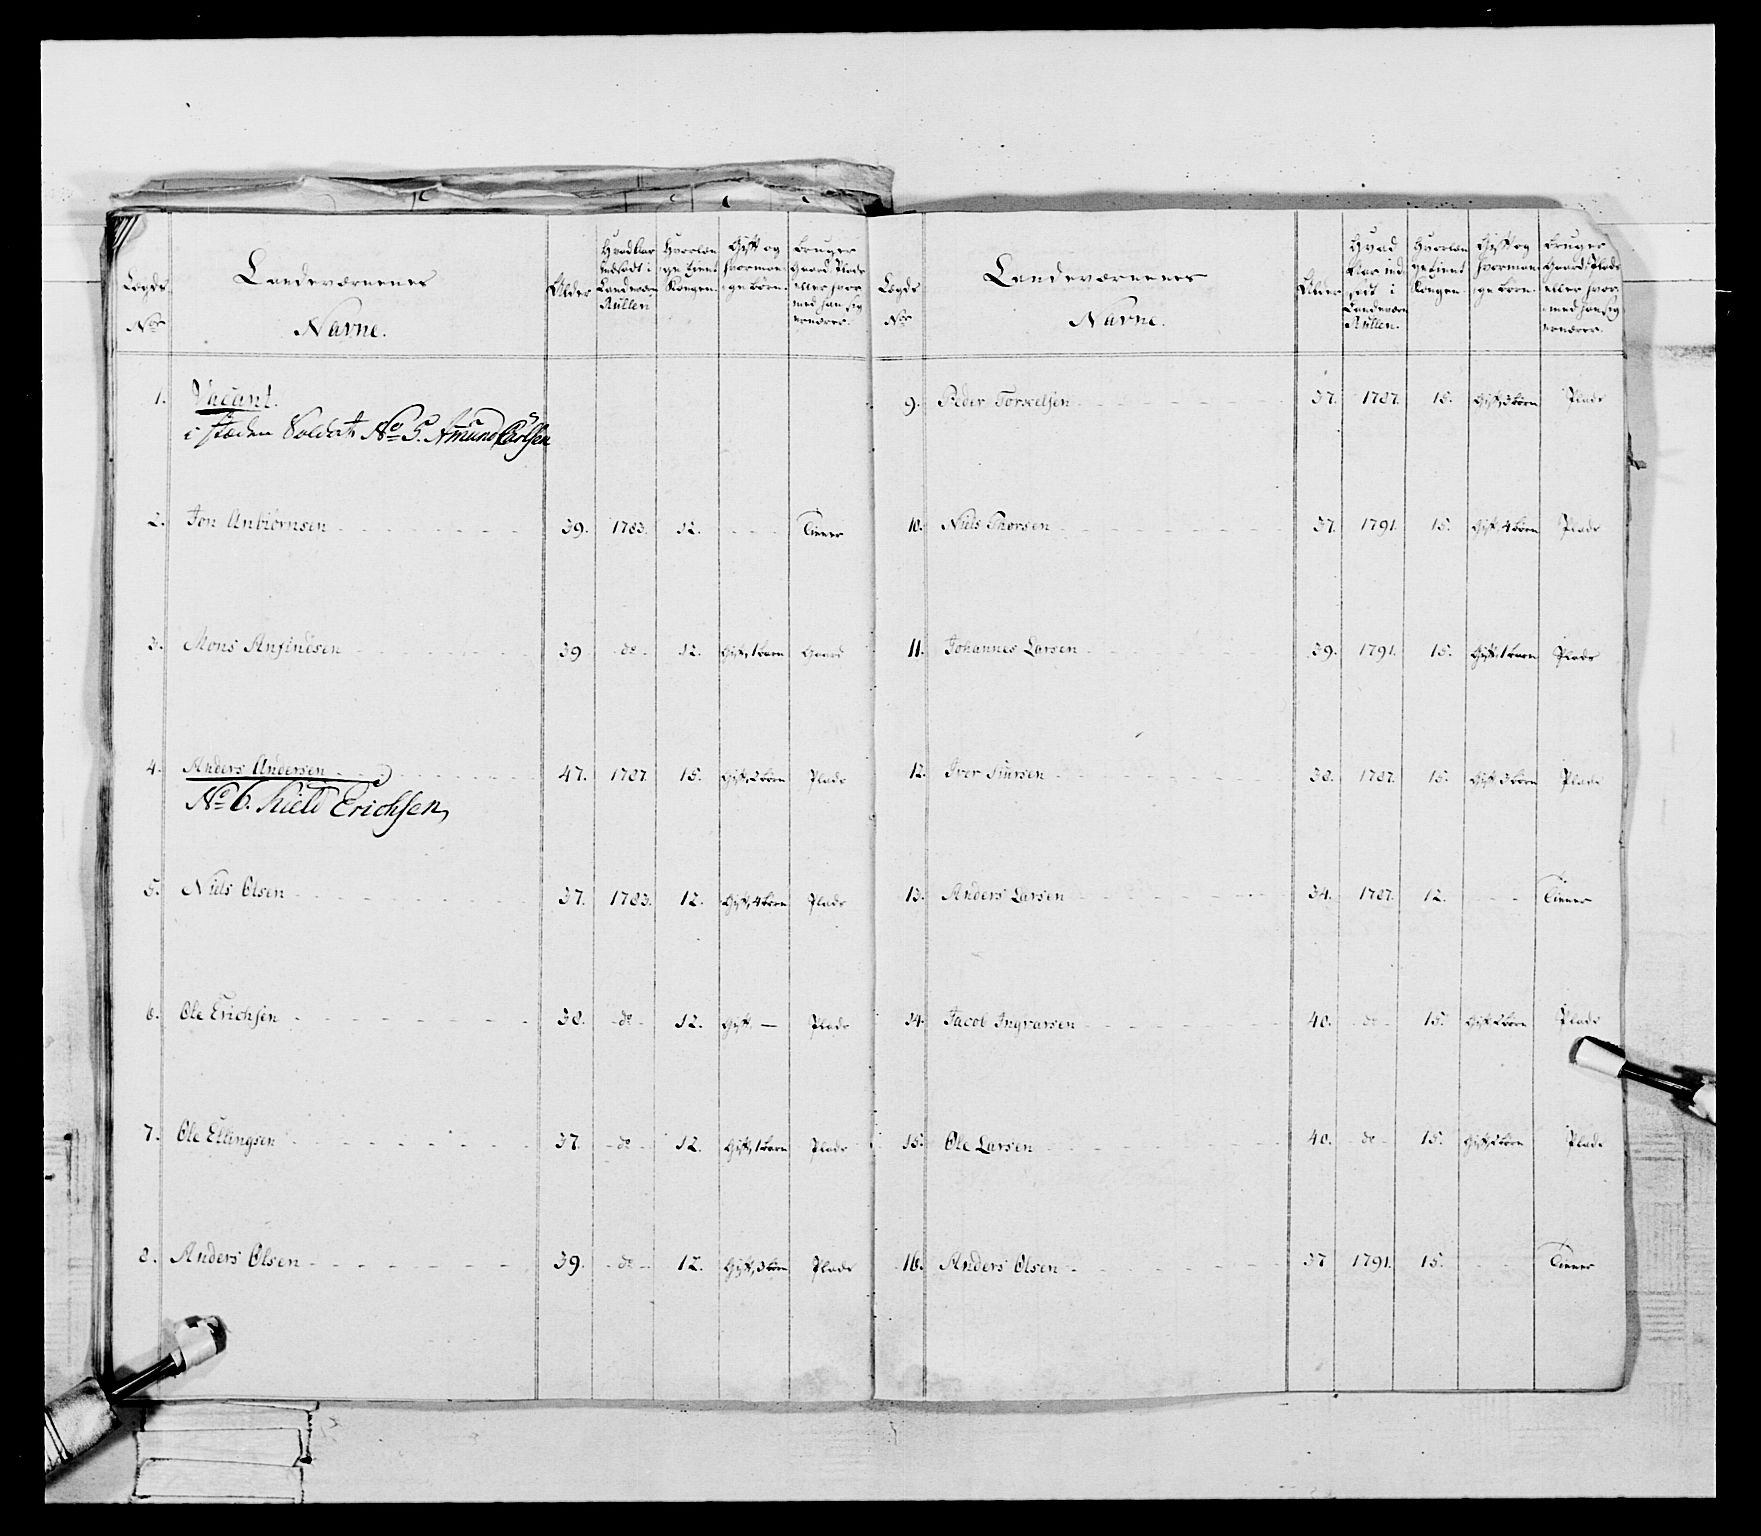 Lægds
No
Landeværnenes
Navne.
Alder
Hvad Aar
indsadt i
Landeværn
Rullen
Hvorlæn
ge tient
Kongen.
Gift og
hvorman
ge børn.
bruger
Gaard, Plads
eller hvor
med han sig
ernærer.
1. Vacant.
i stæden Soldat No 5. Amund Carlsen
2. Jon Anbiörnsen 39. 1783. 12. Tiener
3. Mons Anfindsen 39 do 12. Gift, 1 barn Gaard
4. Anders Andersen 47. 1787 15. Gift, 2 børn Plads
No 6. Kield Erichsen
5. Niels Olsen 37. 1783. 12. Gift, 4 børn Plads
6. Ole Erichsen 38. do 12. Gift, — Plads
7. Ole Ellingsen 37. do 12. Gift, 1 barn Plads
8. Anders Olsen 39. do 12. Gift, 3 børn Plads
Lægds
No
Landeværnenes
Navne.
Alder
Hvad
Aar ind
sadt i
Landeværn
Rullen.
Hvorlæn
ge tient
Kongen
Gift og
hvorman
ge børn.
bruger
Gaard, Plads
eller hvor
med han sig
ernærer.
9. Peder Torkelsen 37. 1787. 15. Gift, 3 børn Plads
10. Niels Thorsen 37. 1791. 15. Gift, 4 børn Plads
11. Johannes Larsen 39. 1791. 15. Gift, 1 barn Plads
12. Iver Siursen 38. 1787. 15. Gift, 3 børn Plads
13. Anders Larsen 34. 1787. 12. Tiener
14. Jacob Ingvarsen 40. do 15. Gift, 2 børn Plads
15. Ole Larsen 40. do 15. Gift, 2 børn Plads
16. Anders Olsen 37 1791. 15. Tiener